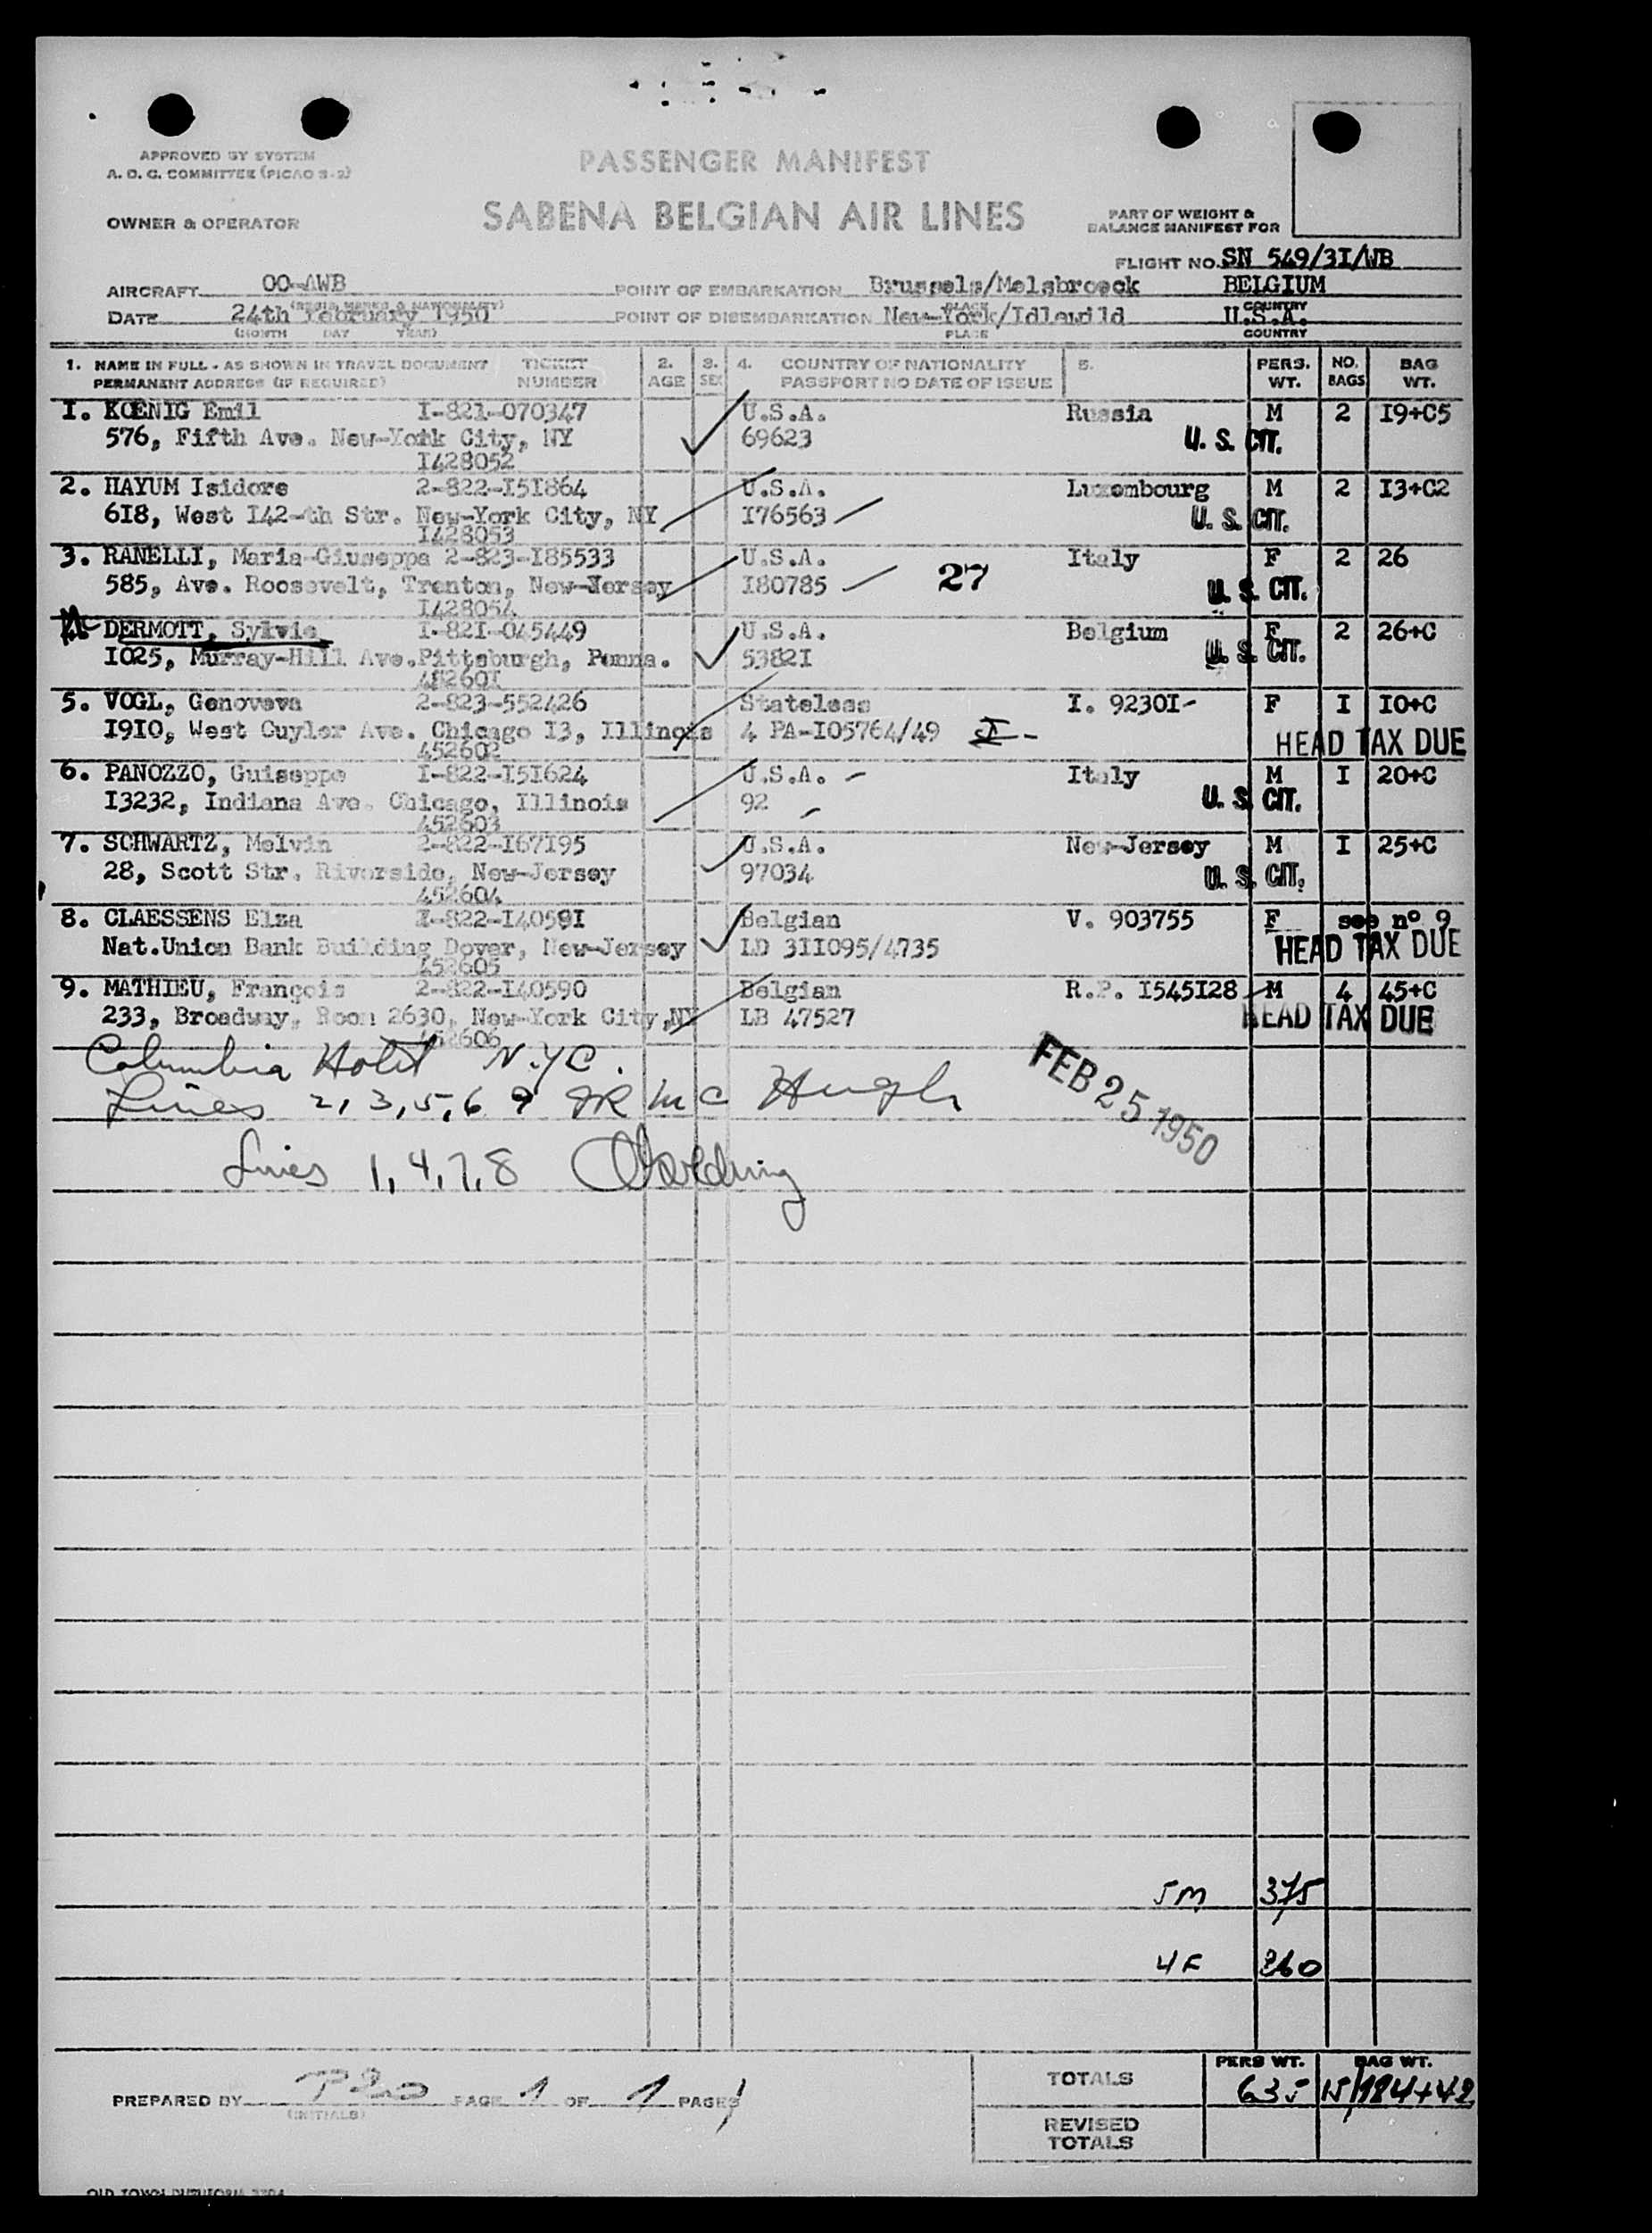 APPROVED BY SYSTEM
A. O. C. COMMITTEE (PICAO S-2)
PASSENGER MANIFEST
SABENA BELGIAN AIR LINES
OWNER & OPERATOR
PART OF WEIGHT &
BALANCE MANIFEST FOR
FLIGHT NO. SN 549/3I/WB
AIRCRAFT OO-AWB POINT OF EMBARKATION Brussels/Melsbroeck BELGIUM
(REGIS. MARKS & NATIONALITY) PLACE COUNTRY
DATE 24th February 1950 POINT OF DISEMBARKATION New-York/Idlewild U.S.A.
(MONTH DAY YEAR) PLACE COUNTRY
1. NAME IN FULL - AS SHOWN IN TRAVEL DOCUMENT TICKET 2. 3. 4. COUNTRY OF NATIONALITY 5. PERS. NO. BAG
PERMANENT ADDRESS (IF REQUIRED) NUMBER AGE SEX PASSPORT NO DATE OF ISSUE WT. BAGS WT.
I. KŒNIG Emil I-821-070347 U.S.A. Russia M 2 I9+C5
576, Fifth Ave. New-York City, NY 69623 U. S. CIT.
I428052
2. HAYUM Isidore 2-822-I5I864 U.S.A. Luxembourg M 2 I3+C2
6I8, West I42-th Str. New-York City, NY I76563 U. S. CIT.
I428053
3. RANELLI, Maria-Giuseppa 2-823-I85533 U.S.A. Italy F 2 26
585, Ave. Roosevelt, Trenton, New-Jersey I80785 27 U. S. CIT.
I428054
DERMOTT, Sylvie I-82I-045449 U.S.A. Belgium F 2 26+C
I025, Murray-Hill Ave.Pittsburgh, Penna. 5382I U. S. CIT.
45260I
5. VOGL, Genoveva 2-823-552426 Stateless I. 9230I- F I I0+C
I9I0, West Cuyler Ave. Chicago I3, Illinois 4 PA-I05764/49 HEAD TAX DUE
452602
6. PANOZZO, Guiseppe I-822-I5I624 U.S.A. Italy M I 20+C
I3232, Indiana Ave. Chicago, Illinois 92 U. S. CIT.
452603
7. SCHWARTZ, Melvin 2-822-I67I95 U.S.A. New-Jersey M I 25+C
28, Scott Str. Riverside, New-Jersey 97034 U. S. CIT.
452604
8. CLAESSENS Elza I-822-I4059I Belgian V. 903755 F see n° 9
Nat.Union Bank Building Dover, New-Jersey LD 3II095/4735 HEAD TAX DUE
452605
9. MATHIEU, François 2-822-I40590 Belgian R.P. I545I28 M 4 45+C
233, Broadway, Room 2630, New-York City,NY LB 47527 HEAD TAX DUE
452606
Columbia Hotel N.Y.C.
Lines 2, 3, 5, 6 9 JR McHugh
FEB 25 1950
Lines 1, 4, 7, 8
5M 375
4F 260
PERS WT. BAG WT.
TOTALS 635 15/184+42
PREPARED BY PAGE 1 OF 1 PAGES
(INITIALS)
REVISED
TOTALS